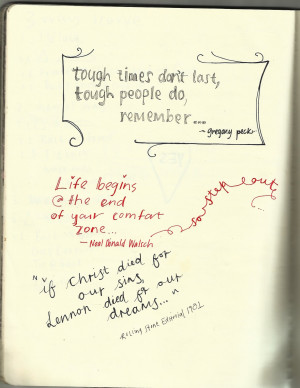 tough times don't last,
tough people do,
remember...
~ gregory peck
Life begins
@ the end
of your comfort
zone...
— Neal Donald Walsch
so step out
...
"if Christ died for
our sins,
Lennon died for our
dreams..."
Rolling Stone Editorial 1982